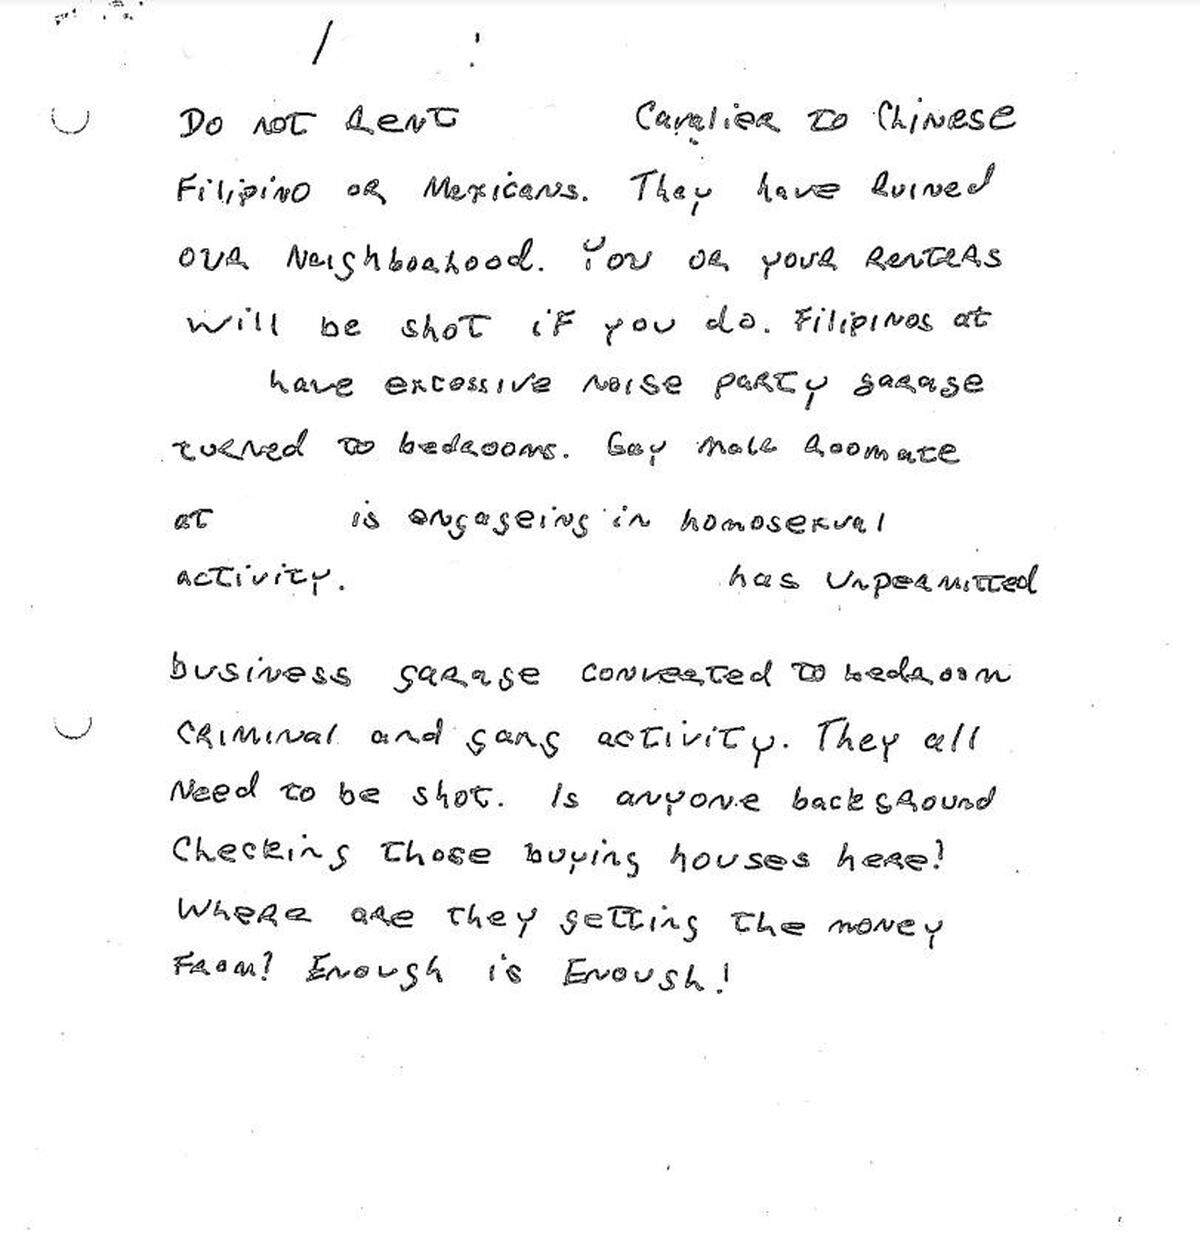 Do not Rent Cavalier to Chinese
Filipino or Mexicans. They have Ruined
our Neighborhood. You or your Renters
will be shot if you do. Filipinos at
have excessive noise party garage
turned to bedrooms. Gay male Roomate
at is engageing in homosexual
activity. has unpermitted
business garage converted to bedroom
criminal and gang activity. They all
need to be shot. Is anyone background
checking those buying houses here?
Where are they getting the money
from? Enough is Enough!